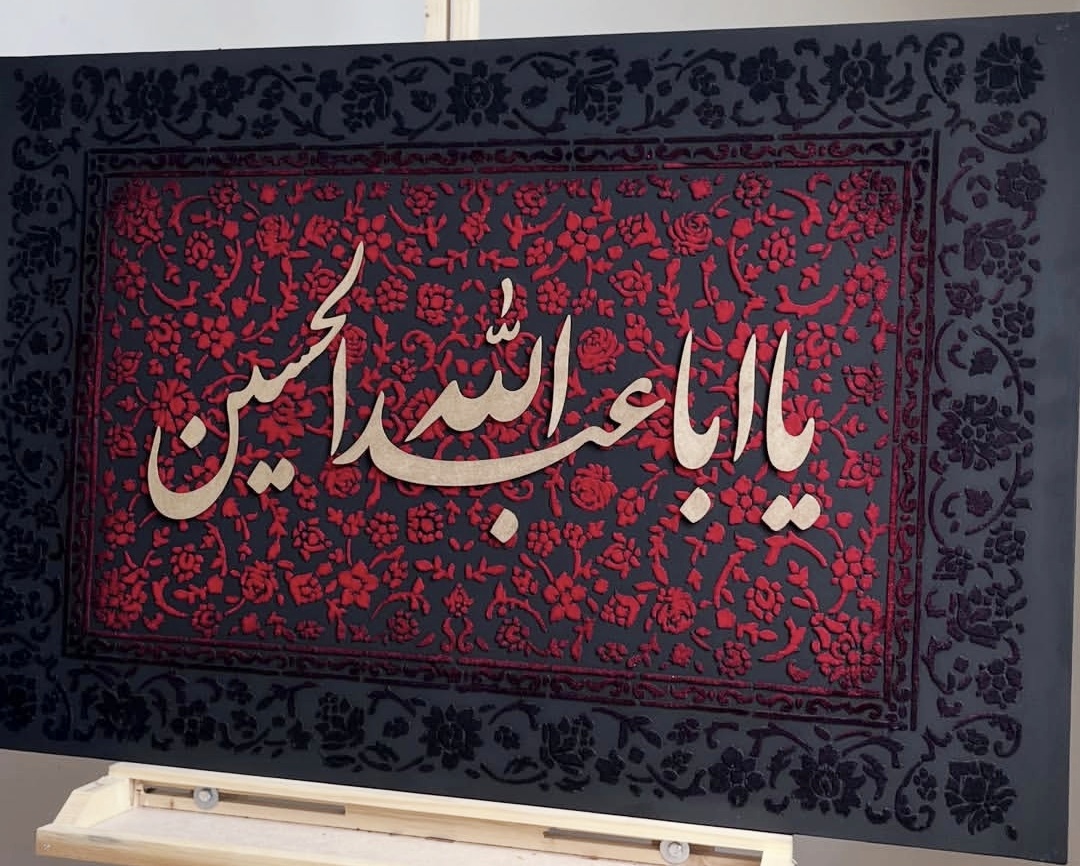 یا ابا عبدالله الحسین